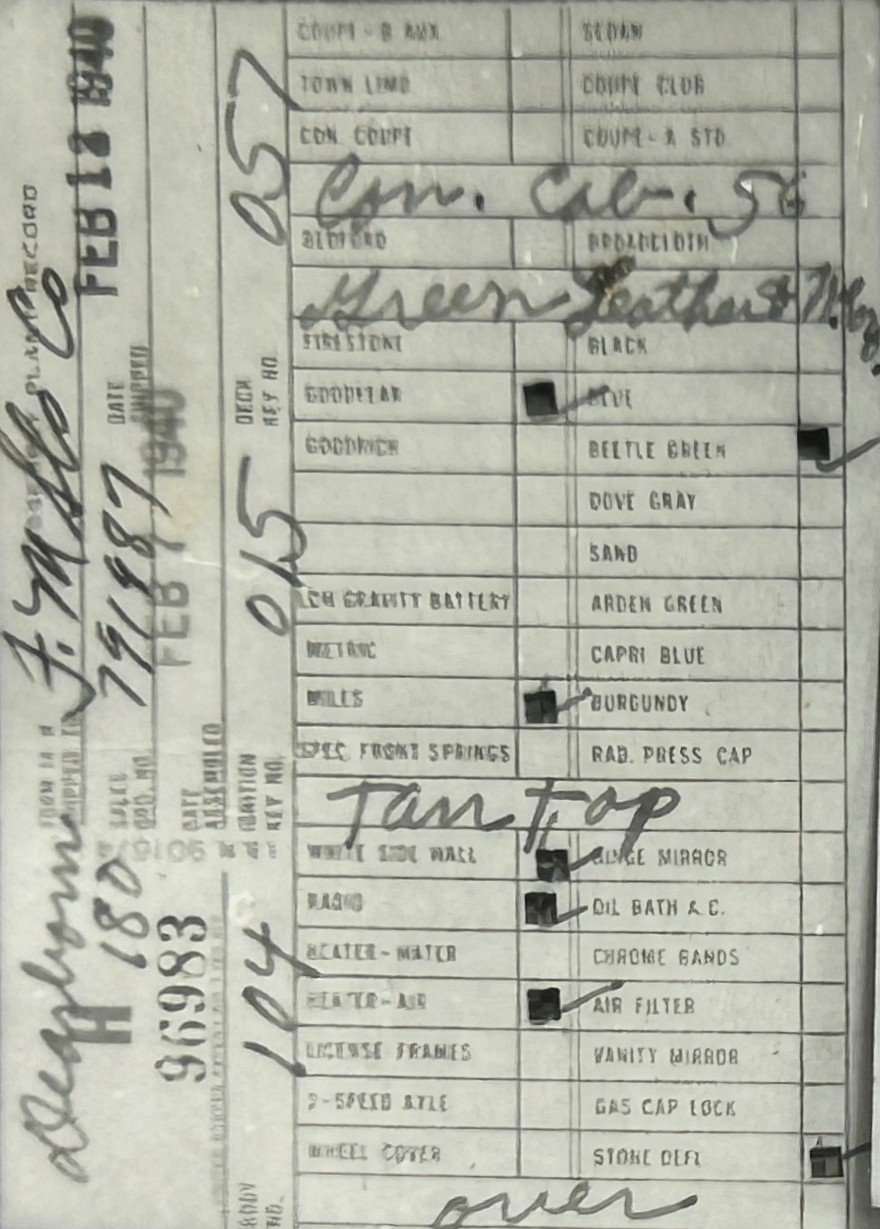 COUPE - B AUX SEDAN
TOWN LIMO COUPE CLUB
CON. COUPE COUPE - A STD
Con. Cab. 56
BEDFORD BROADCLOTH
Green Leather
FIRESTONE BLACK
GOODYEAR BLUE
GOODRICH BEETLE GREEN
DOVE GRAY
SAND
GRAVITY BATTERY ARDEN GREEN
CAPRI BLUE
BURGUNDY
SPEC FRONT SPRINGS RAD. PRESS CAP
Tan Top
WHITE SIDE WALL MIRROR
RADIO OIL BATH A.C.
HEATER - WATER CHROME BANDS
HEATER - AIR AIR FILTER
LICENSE FRAMES VANITY MIRROR
2-SPEED AXLE GAS CAP LOCK
WHEEL COVER STONE DEFL
over
Dearborn
F. M. Co
PLANT RECORD
H 180
SALES ORD. NO. 791987
DATE SHIPPED
FEB 13 1940
96983
DATE ASSEMBLED
FEB 7 1940
BODY NO. 104
IGNITION KEY NO. 015
DECK KEY NO. 057